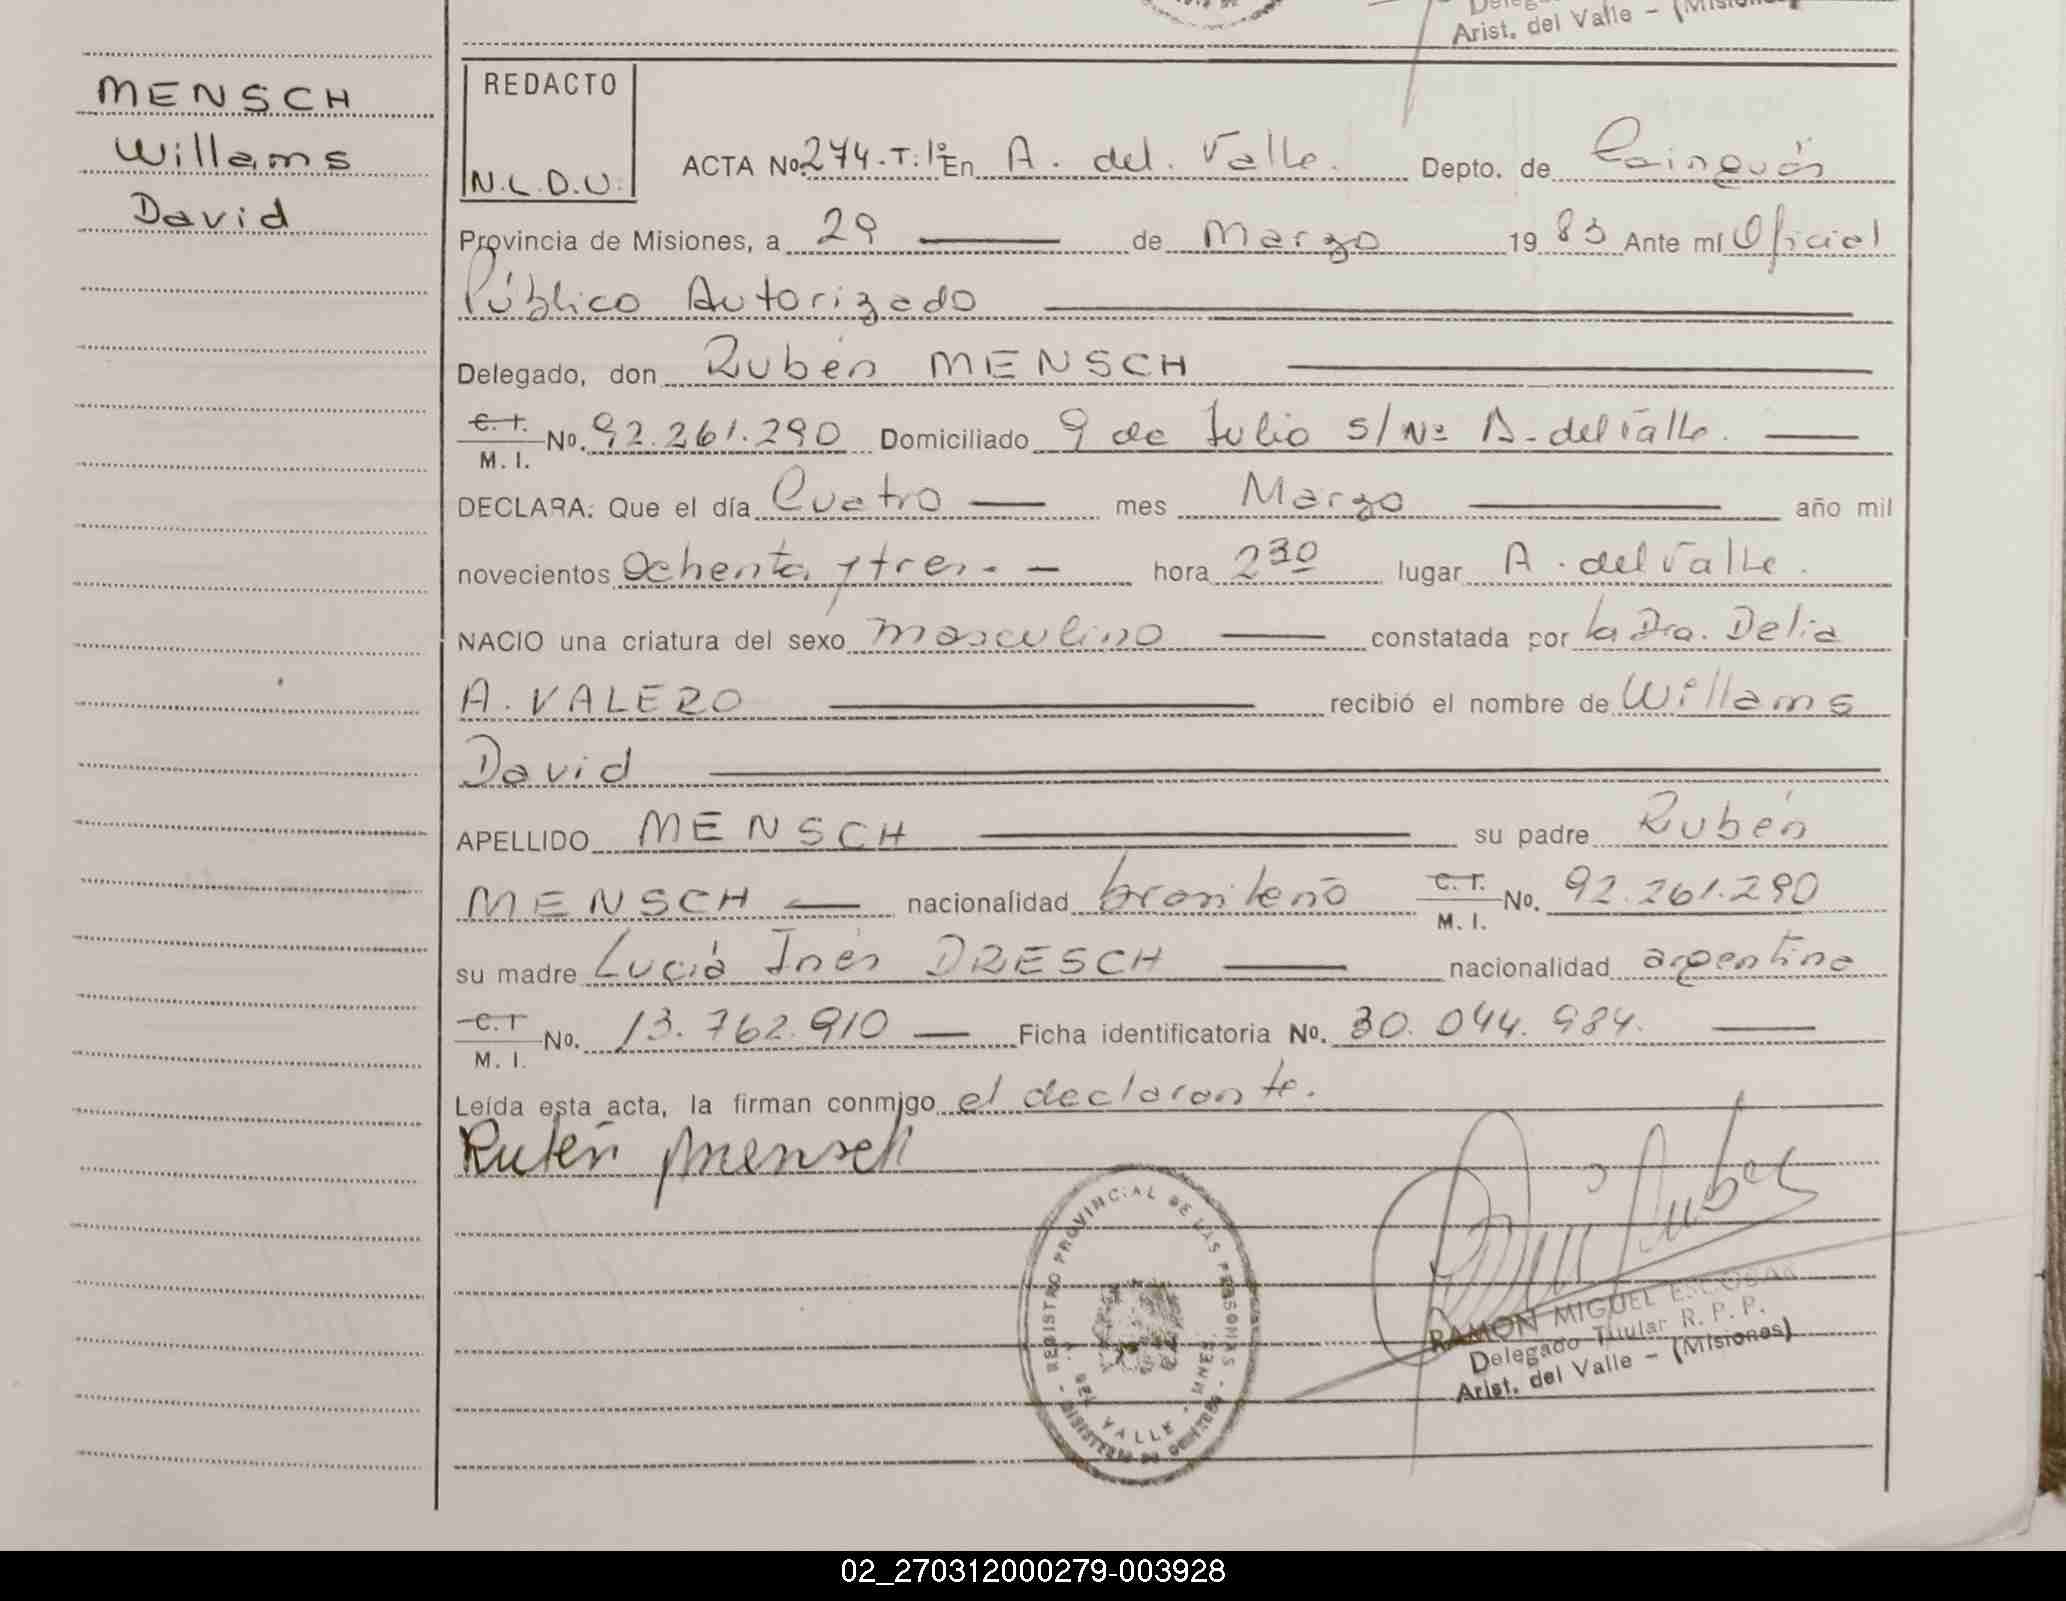 Arist. del Valle - (Misiones)
MENSCH
Willams
David
REDACTO
N.L.D.U.
ACTA No. 274.T.1º En A. del. Valle. Depto. de Cainguás
Provincia de Misiones, a 29 de Marzo 1983 Ante mí Oficial
Público Autorizado
Delegado, don Rubén MENSCH
C.I. M.I. No. 92.261.290 Domiciliado 9 de Julio S/Nº A. del Valle.
DECLARA: Que el día Cuatro mes Marzo año mil
novecientos Ochenta y tres. hora 2 30 lugar A. del Valle.
NACIO una criatura del sexo masculino constatada por la Dra. Delia
A. VALERO recibió el nombre de Willams
David
APELLIDO MENSCH su padre Rubén
MENSCH nacionalidad brasileño C.I. M.I. No. 92.261.290
su madre Lucía Inés DRESCH nacionalidad argentina
C.I M.I. No. 13.762.910 Ficha identificatoria No. 30.044.984.
Leída esta acta, la firman conmigo el declarante.
Rubén Mensch
REGISTRO PROVINCIAL DE LAS PERSONAS
DEL VALLE - MNES.
MINISTERIO DE GOBIERNO
RAMON MIGUEL ESCOBAR
Delegado Titular R. P. P.
Arist. del Valle - (Misiones)
02_270312000279-003928